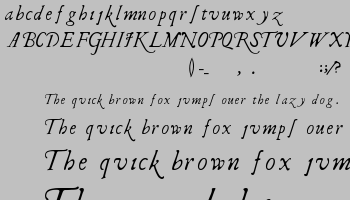 abcdefghıȷklmnopqrſtvuwxyz
ABCDEFGHIJKLMNOPQRSTUVWXY
() -_ , . :;/?
The qvıck brown fox ȷvmpſ ouer the lazy dog.
The qvıck brown fox ȷvmpſ ouer
The qvıck brown fox ȷvm